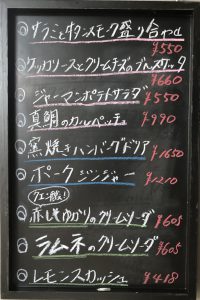 サラミと牛タンスモーク盛り合わせ
¥550
クリームチーズのブルスケッタ
¥660
ジャーマンポテトサラダ ¥550
真鯛のカルパッチョ ¥990
窯焼きハンバーグドリア ¥1650
ポークジンジャー ¥1210
赤しそゆかりのクリームソーダ ¥605
ラムネのクリームソーダ ¥605
レモンスカッシュ ¥418